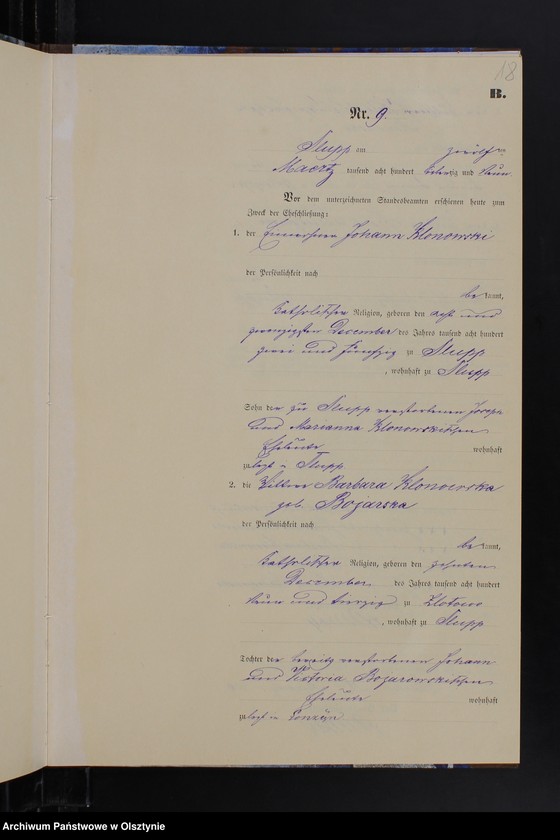 18
B.
Nr. 9.
Slupp am zwölften
Maerz tausend acht hundert und neun
Vor dem unterzeichneten Standesbeamten erschienen heute zum
Zweck der Eheschließung:
1. der Johann Klonowski
der Persönlichkeit nach
be kannt,
katholischer Religion, geboren den acht und
zwanzigsten December des Jahres tausend acht hundert
zwei und fünfzig zu Slupp
, wohnhaft zu Slupp
Sohn der zu Slupp verstorbenen Joseph
und Marianna Klonowskischen
Eheleute wohnhaft
zuletzt in Slupp
2. die Wittwe Barbara Klonowska
geb. Bojarska
der Persönlichkeit nach
be kannt,
katholischer Religion, geboren den zehnten
December des Jahres tausend acht hundert
neun und vierzig zu Zlotowo
, wohnhaft zu Slupp
Tochter der bereits verstorbenen Johann
und Victoria Bojarowskischen
Eheleute wohnhaft
zuletzt in
Archiwum Państwowe w Olsztynie